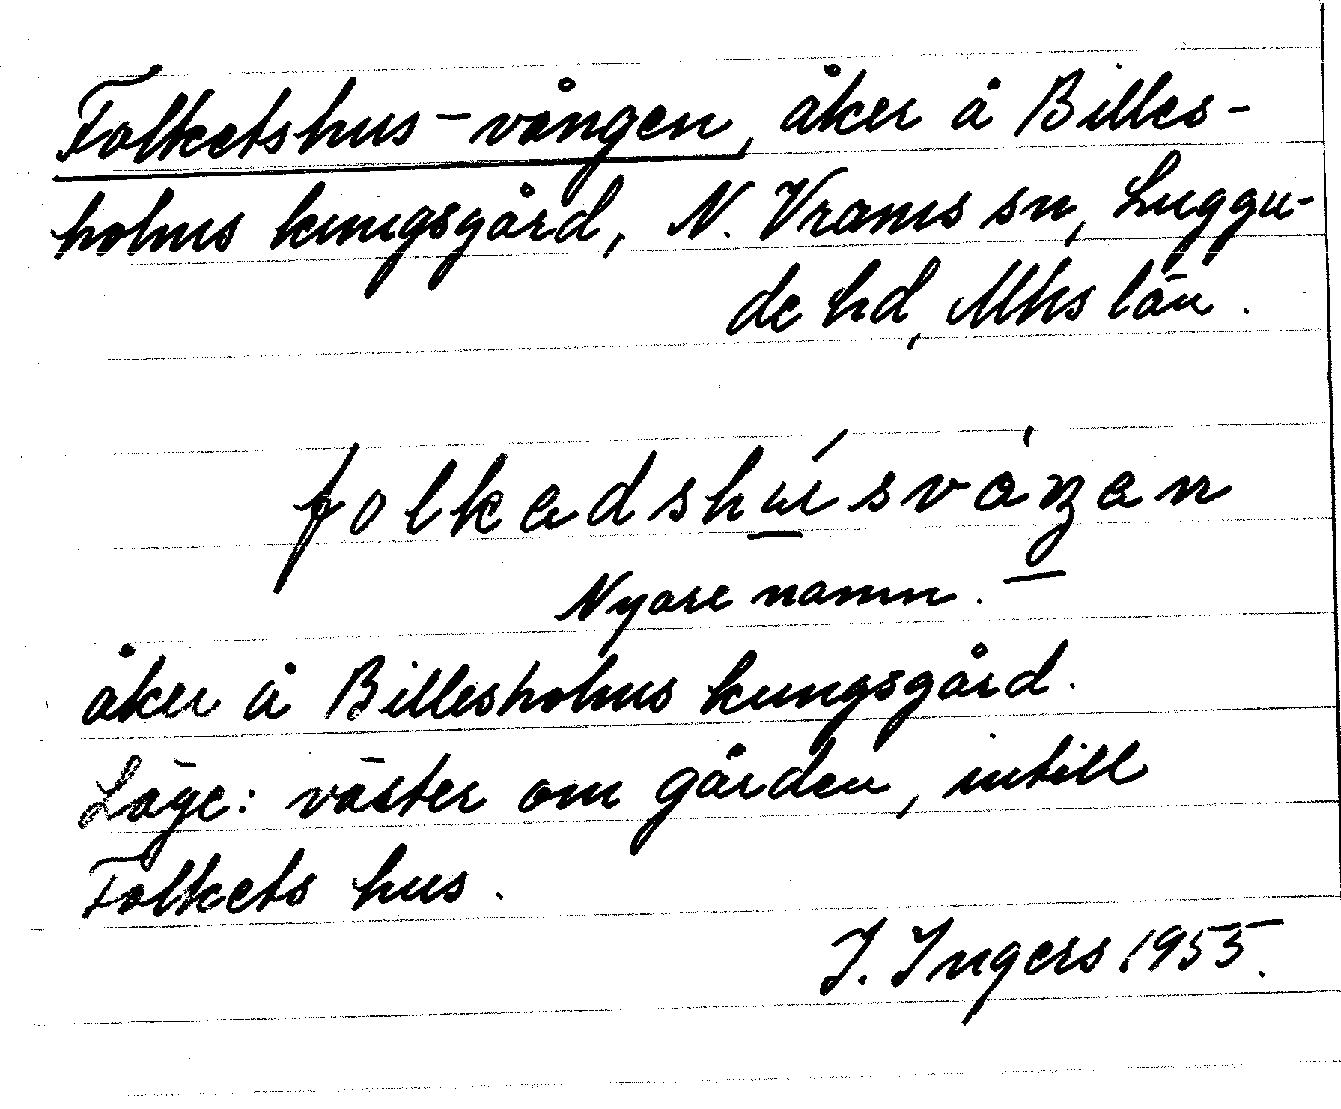 Folketshus-vången, åker å Billes-
holms kungsgård, N. Vrams sn, Luggu-
de hd, Mhs län.
folkadshú̲svȧŋ̲an
Nyare namn.
åker å Billesholms kungsgård.
Läge: väster om gården, intill
Folkets hus.
I. Ingers 1955.